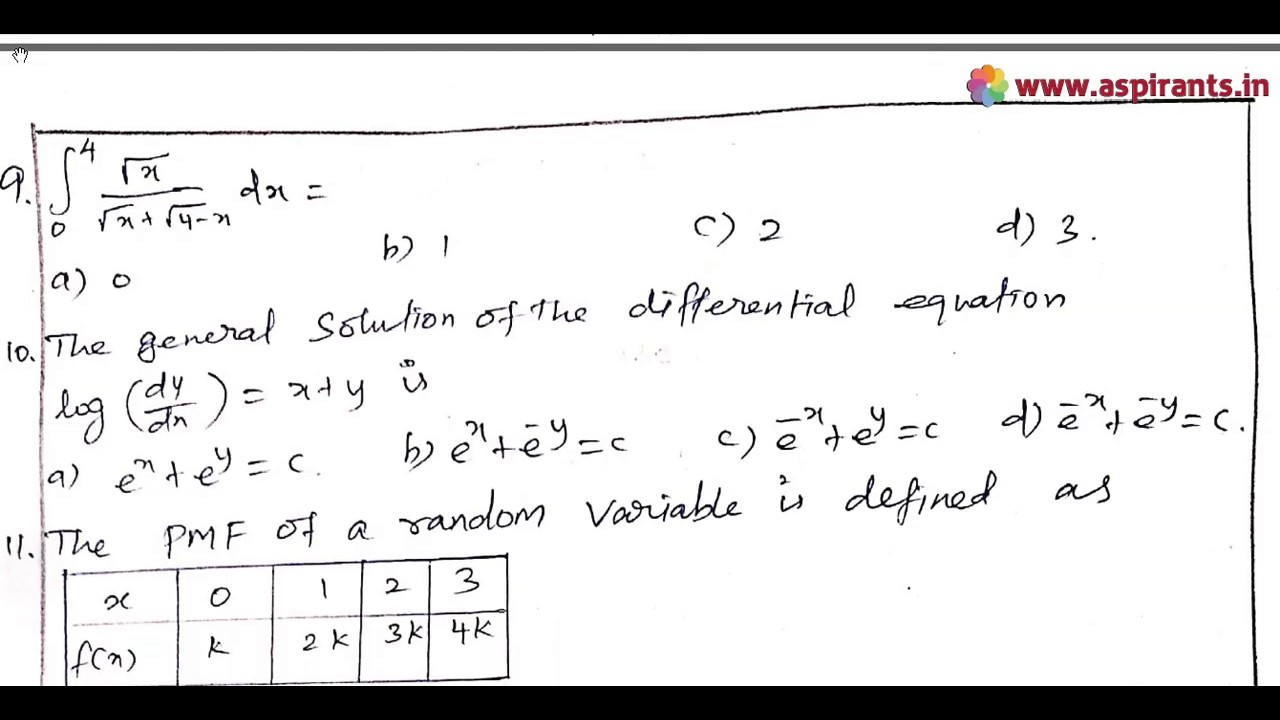 www.aspirants.in
9. ∫₀⁴ √x / (√x + √4-x) dx =
a) 0 b) 1 c) 2 d) 3.
10. The general solution of the differential equation
log (dy/dx) = x+y is
a) eˣ + eʸ = c. b) eˣ + e⁻ʸ = c c) e⁻ˣ + eʸ = c d) e⁻ˣ + e⁻ʸ = c.
11. The PMF of a random variable is defined as
x 0 1 2 3
f(x) k 2k 3k 4k